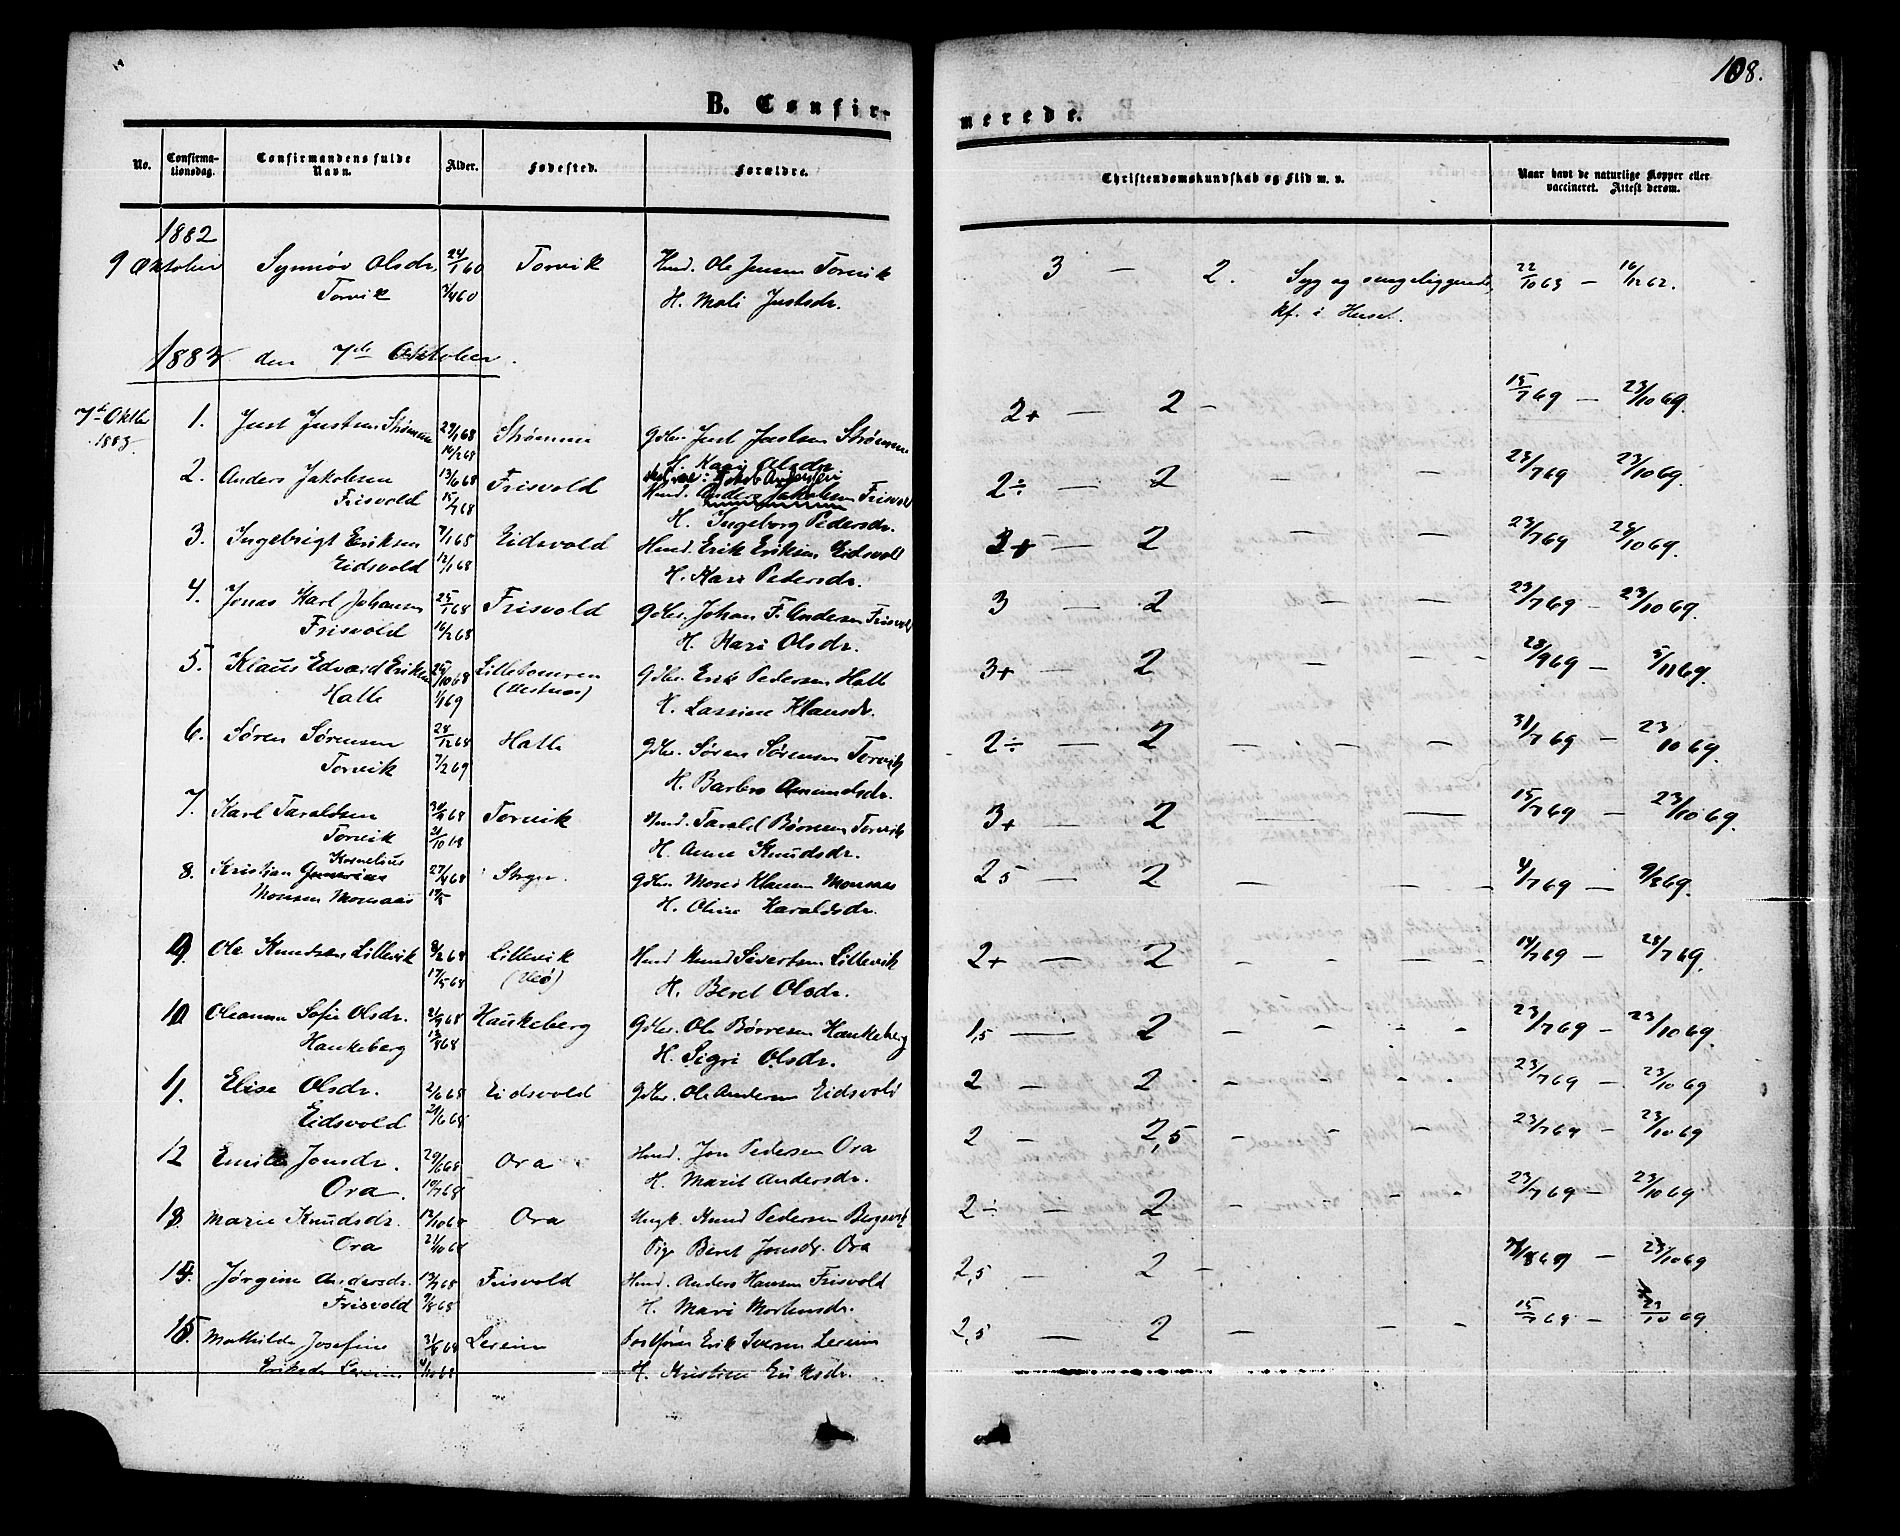 108.
B. Confir-
merede.
No.
Confirma-
tionsdag.
Confirmandens fulde
Navn.
Alder.
Fødested.
Forældre.
Christendomskundskab og Flid m. v.
Naar havt de naturlige Kopper eller
vaccineret. Attest derom.
1882
9 Oktober Synnöv Olsdr. 24/1 60 Torvik Husmd. Ole Jensen Torvik 3 — 2. Syg og sengeliggende, 22/10 63 — 16/12 62.
Torvik 7/4 60 H. Mali Justsdr. Kf. i Huset.
1883 den 7de Oktober.
7de Oktbr 1. Just Justsen Strømme 29/1 68 Strømme Gdbr. Just Justsen Strømme 2+ — 2 — 15/7 69 — 23/10 69.
1883. 16/2 68 H. Kari Olsdr.
2. Anders Jakobsen 13/6 68 Frisvold Husmd. Anders Jakobsen Frisvold 2÷ — 2 — — 23/7 69 23/10 69.
Frisvold 15/7 68 H. Ingeborg Pedersdr.
3. Ingebrigt Eriksen 7/1 68 Eidsvold Husmd. Erik Eriksen Eidsvold 3+ — 2 — — 23/7 69 23/10 69.
Eidsvold 12/1 68 H. Kari Pedersdr.
4. Jonas Karl Johansen 25/1 68 Frisvold Gdbr. Johan F. Andersen Frisvold 3 — 2 — — 23/7 69 — 23/10 69.
Frisvold 16/2 68 H. Kari Olsdr.
5. Klaus Edvard Eriksen 25/10 68 Lillebomren Gdbr. Erik Pedersen Hatle 3+ — 2 — — 23/9 69 — 5/11 69.
Hatle 1/1 69 (Vestnes) H. Lassine Klausdr.
6. Søren Sørensen 28/12 68 Hatle Gdbr. Søren Sørensen Torvik 2÷ — 2 — — — 31/7 69 — 23/10 69.
Torvik 7/2 69 H. Barbro Amundsdr.
7. Karl Taraldsen 68 Torvik Husmd. Tarald Børresen Torvik 3+ — 2 — — 15/7 69 — 23/10 69.
Torvik H. Anne Knudsdr.
Kornelius
8. Kristian 27/4 68 Gdbr. Mons Klausen Monsaas 2 5 — 2 — — — 4/7 69 — 9/8 69.
Monsen Monsaas H. Oline Haraldsdr.
9. Ole Knudsen Lillevik 8/2 68 Lillevik Husmd Knud Sivertsen Lillevik 2+ — 2 — — — 14/7 69 — 28/7 69.
17/5 68 (Veö) H. Beret Olsdr.
10 Oleanna Sofie Olsdr. 68 Haukeberg Gdbr. Ole Børresen Haukeberg 1,5 — 2 — — — 23/7 69 — 23/10 69.
Haukeberg 68 H. Sigri Olsdr.
11. Elise Olsdr. 2/6 68 Eidsvold Gdbr. Ole Andersen Eidsvold 2 — 2 — — — 23/7 69 — 23/10 69
Eidsvold 29/6 68
12 Emilie Jonsdr. 29/6 68 Ora Husmd. Jon Pedersen Ora 2 — 2,5 — — — 23/7 69 23/10 69
Ora. 19/7 68 H. Marit Andersdr.
13 Marie Knudsdr. 68 Ora Ungk. Knud Pedersen Bergsvik 2÷ — 2 — — 23/7 69 — 23/10 69
Ora 68 Pige Beret Jonsdr. Ora
14. Jørgine Andersdr. 13/7 68 Frisvold Husmd. Anders Hansen Frisvold 2,5 — 2 — 69 — 23/10 69
Frisvold 9/8 68 H. Mari Mortensdr.
15. Mathilde Josefine 31/8 68 Lereim Erik Iversen Lereim 2,5 — 2 — — — 15/7 69 — 23/10 69
Eriksdr. Lereim 68 H. Kristine Eriksdr.